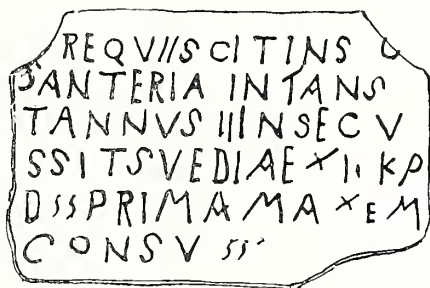 REQVIISCITINS C
SANTERIA INTANS
TANNVS IIINSECV
SSITSVEDIAE XII KP
DSSPRIMAMA XEM
CONSV SS